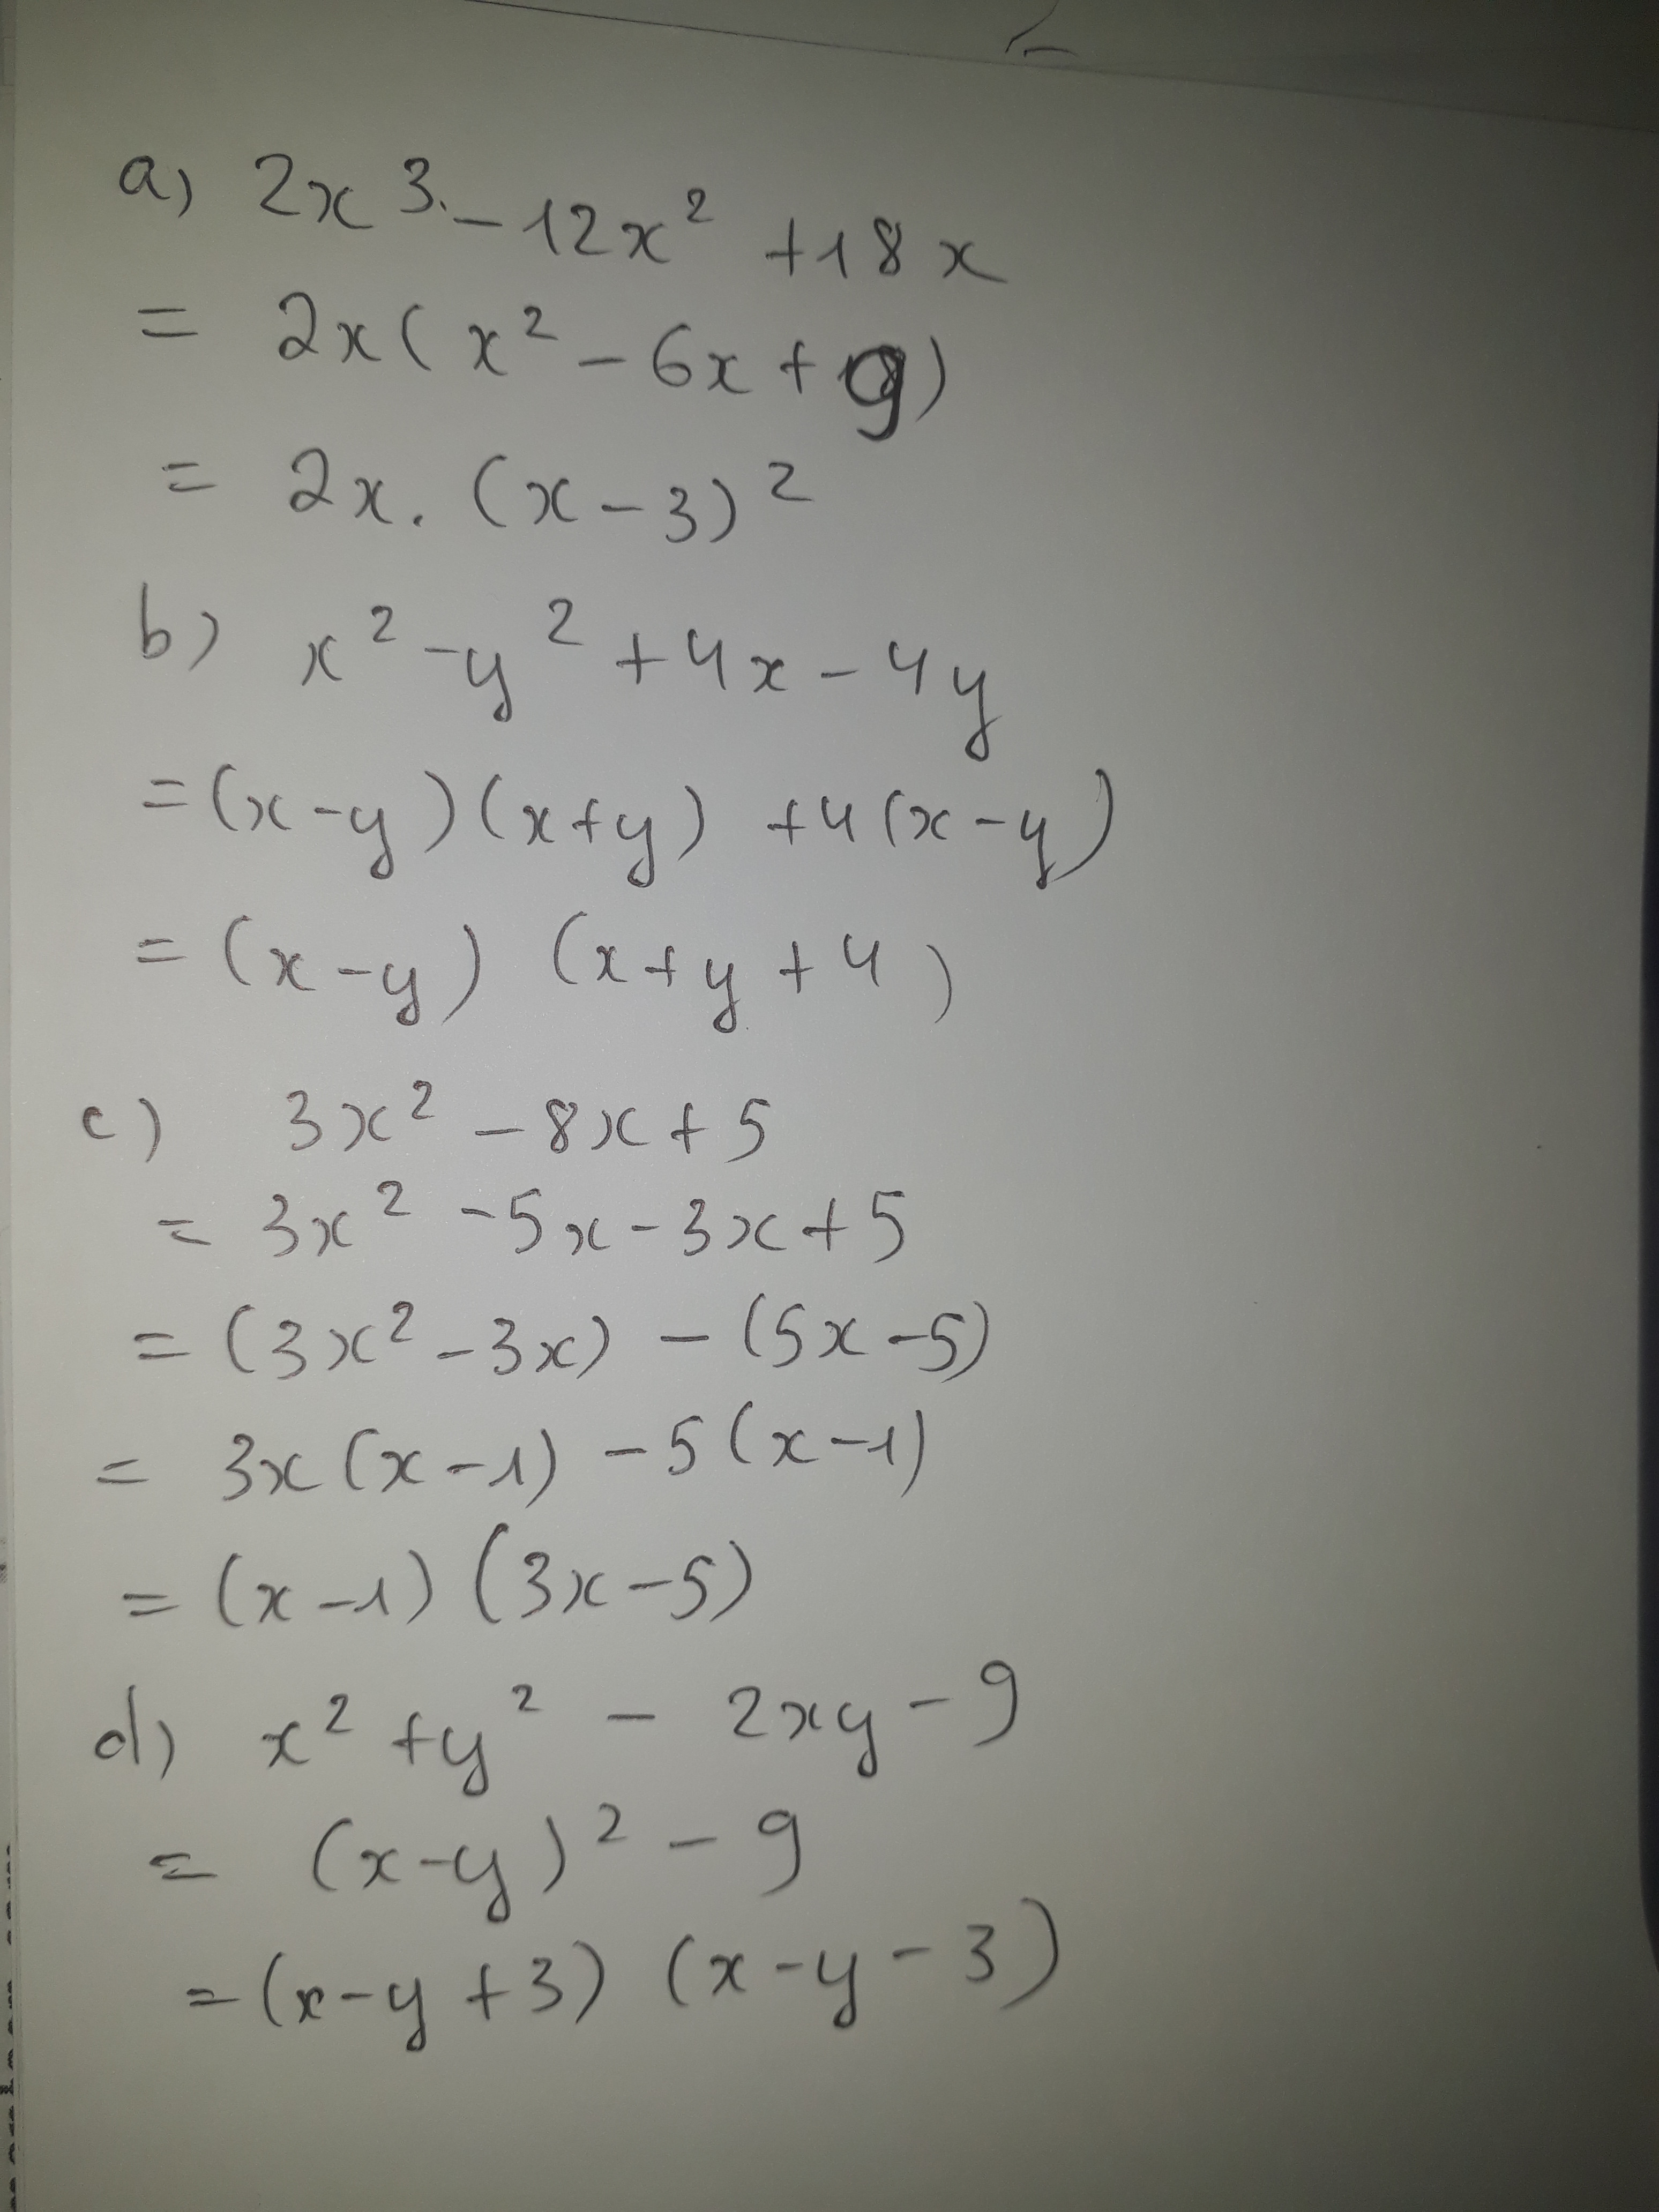 a) 2x³ - 12x² + 18x
= 2x(x² - 6x + 9)
= 2x. (x - 3)²
b) x² - y² + 4x - 4y
= (x - y)(x + y) + 4(x - y)
= (x - y) (x + y + 4)
c) 3x² - 8x + 5
= 3x² - 5x - 3x + 5
= (3x² - 3x) - (5x - 5)
= 3x(x - 1) - 5(x - 1)
= (x - 1) (3x - 5)
d) x² + y² - 2xy - 9
= (x - y)² - 9
= (x - y + 3) (x - y - 3)